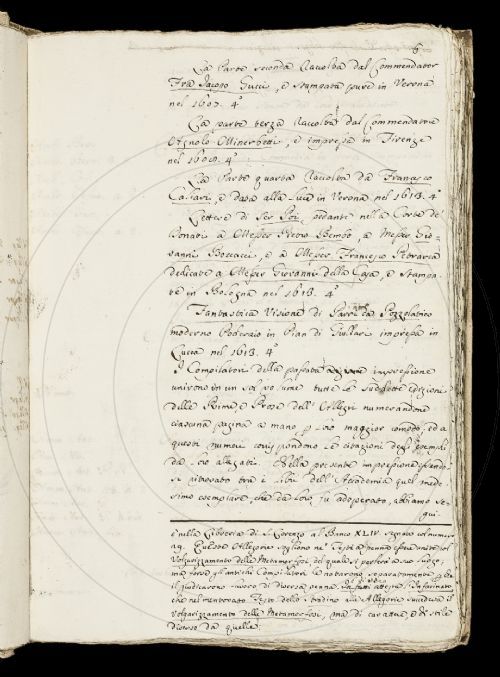 6
La Parte seconda Raccolta dal Commendator
Fra Jacopo Gucci, e stampata pure in Verona
nel 1607. 4°
La parte terza Raccolta dal Commendatore
Agnolo Minerbetti, e impressa in Firenze
nel 1609. 4°
La Parte quarta Raccolta da Francesco
Caliari, e data alla luce in Verona nel 1613. 4°
Lettere di Ser Poi pedante nella Corte de'
Donati a Messer Pietro Bembo, a Messer Gio-
vanni Boccacci, e a Messer Francesco Petrarca
dedicate a Messer Giovanni della Casa, e stampa-
te in Bologna nel 1613. 4°
Fantastica Visione di Parri da Pozzolatico
moderno Poderaio in Pian di Giullari impressa in
Lucca nel 1613. 4°
I Compilatori della passata impressione
unirono in un sol volume tutte le suddette edizioni
delle Rime, e Prose dell'Allegri numerandone
ciascuna pagina a mano p loro maggior comodo, ed a
questi numeri corrispondono le citazioni degli esempli
da loro allegati. Nella presente impressione essendo-
si ritrovato tra i libri dell'Accademia quel mede-
simo esemplare, che da loro fu adoperato, abbiamo se-
gui-
è nella Libreria di S. Lorenzo al Banco XLIV. segnato col numero
29. Queste Allegorie sogliono ne' Testi a penna essere unite col
Volgarizzamento delle Metamorfosi, del quale si parlerà a suo luogo,
ma forse gli antichi Compilatori le notarono separatamente p che
il giudicarono lavoro di diversa penna. In fatti
che nel mentovato Testo dello Stradino alle Allegorie succedeva il
volgarizzamento delle Metamorfosi, ma di carattere e di stile
diverso da quelle.